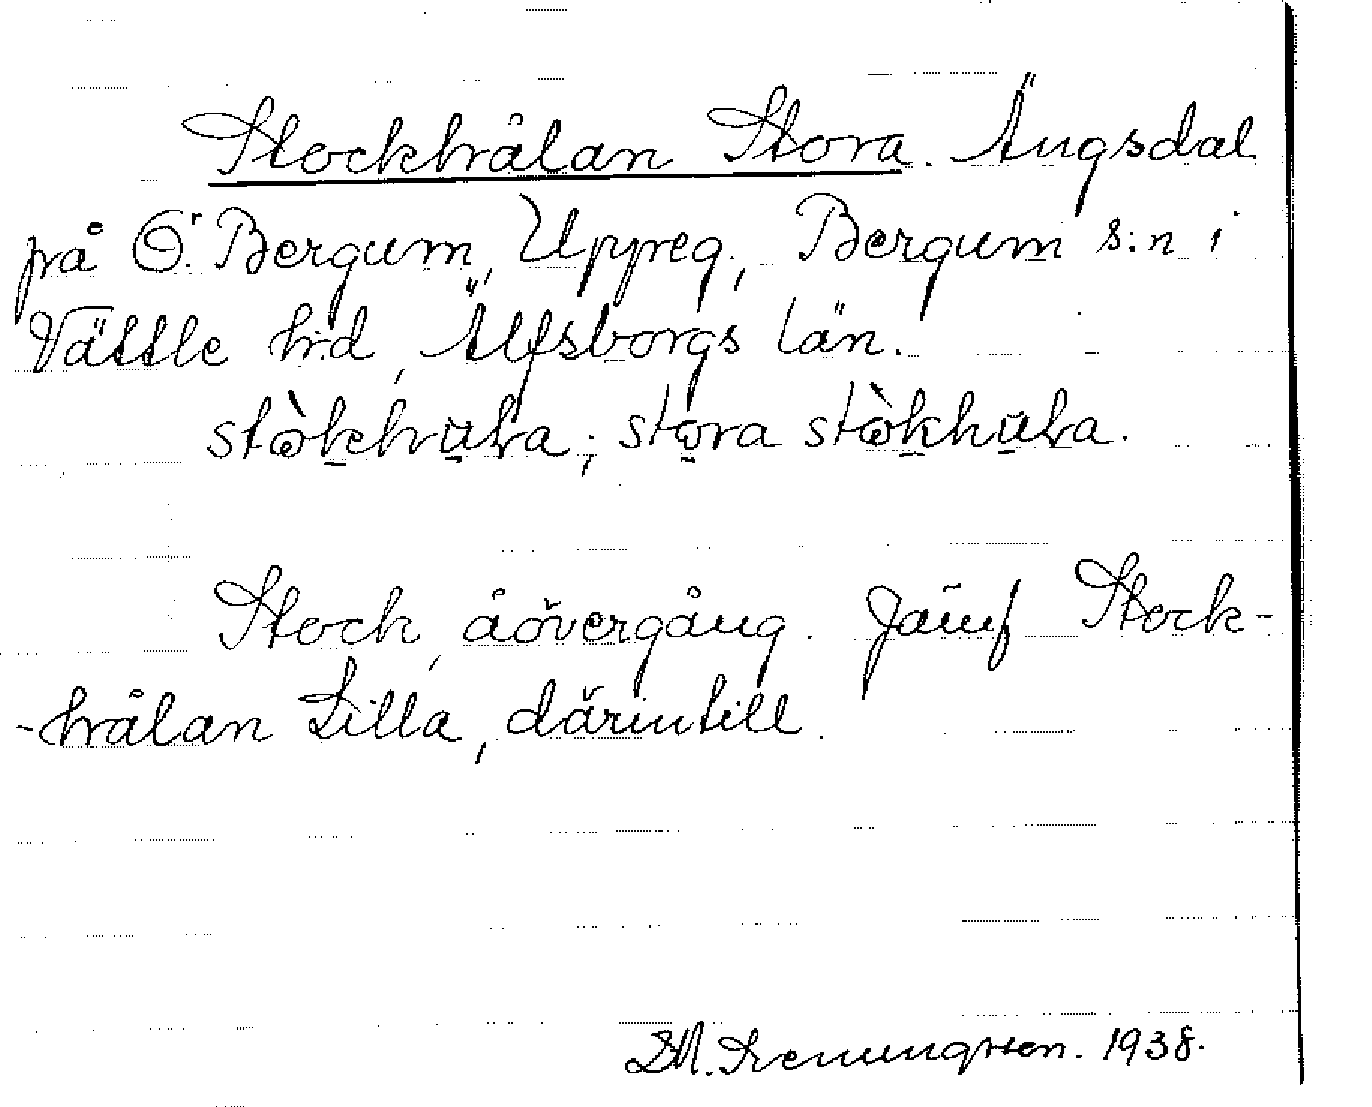 Stockhålan Stora. Ängsdal
på Ö. Bergum, Uppreg, Bergum s:n i
Vättle hd, Älfsborgs län.
stòkhula; stora stòkhula.
Stock, åövergång. Jämf Stock-
-hålan Lilla, därintill.
1938.